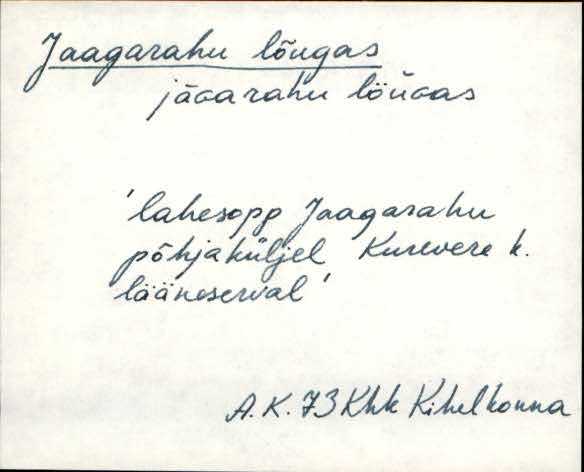 Jaagarahu lõugas
jäGarahu löüGas
'lahesopp Jaagarahu
põhjaküljel Kurevere k.
lääneserval'
A. K. 73 Khk Kihelkonna